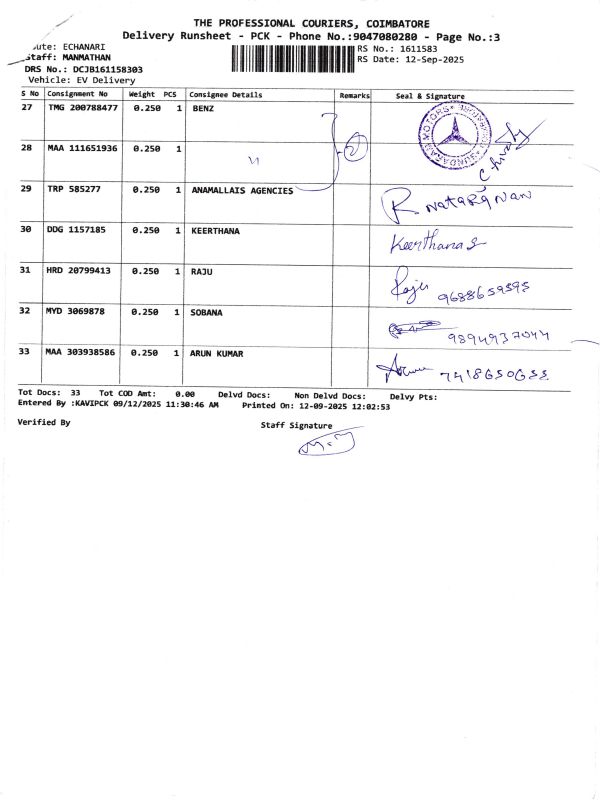 THE PROFESSIONAL COURIERS, COIMBATORE
Delivery Runsheet - PCK - Phone No.:9047080280 - Page No.:3
ute: ECHANARI
RS No.: 1611583
Staff: MANMATHAN
RS Date: 12-Sep-2025
DRS No.: DCJB161158303
Vehicle: EV Delivery
S No Consignment No Weight PCS Consignee Details Remarks Seal & Signature
27 TMG 200788477 0.250 1 BENZ
28 MAA 111651936 0.250 1 " 2
29 TRP 585277 0.250 1 ANAMALLAIS AGENCIES R NATARAJAN
30 DDG 1157185 0.250 1 KEERTHANA Keerthana S
31 HRD 20799413 0.250 1 RAJU Raju 9688659595
32 MYD 3069878 0.250 1 SOBANA 9894937044
33 MAA 303938586 0.250 1 ARUN KUMAR Arun 7418650633
Tot Docs: 33 Tot COD Amt: 0.00 Delvd Docs: Non Delvd Docs: Delvy Pts:
Entered By :KAVIPCK 09/12/2025 11:30:46 AM Printed On: 12-09-2025 12:02:53
Verified By Staff Signature